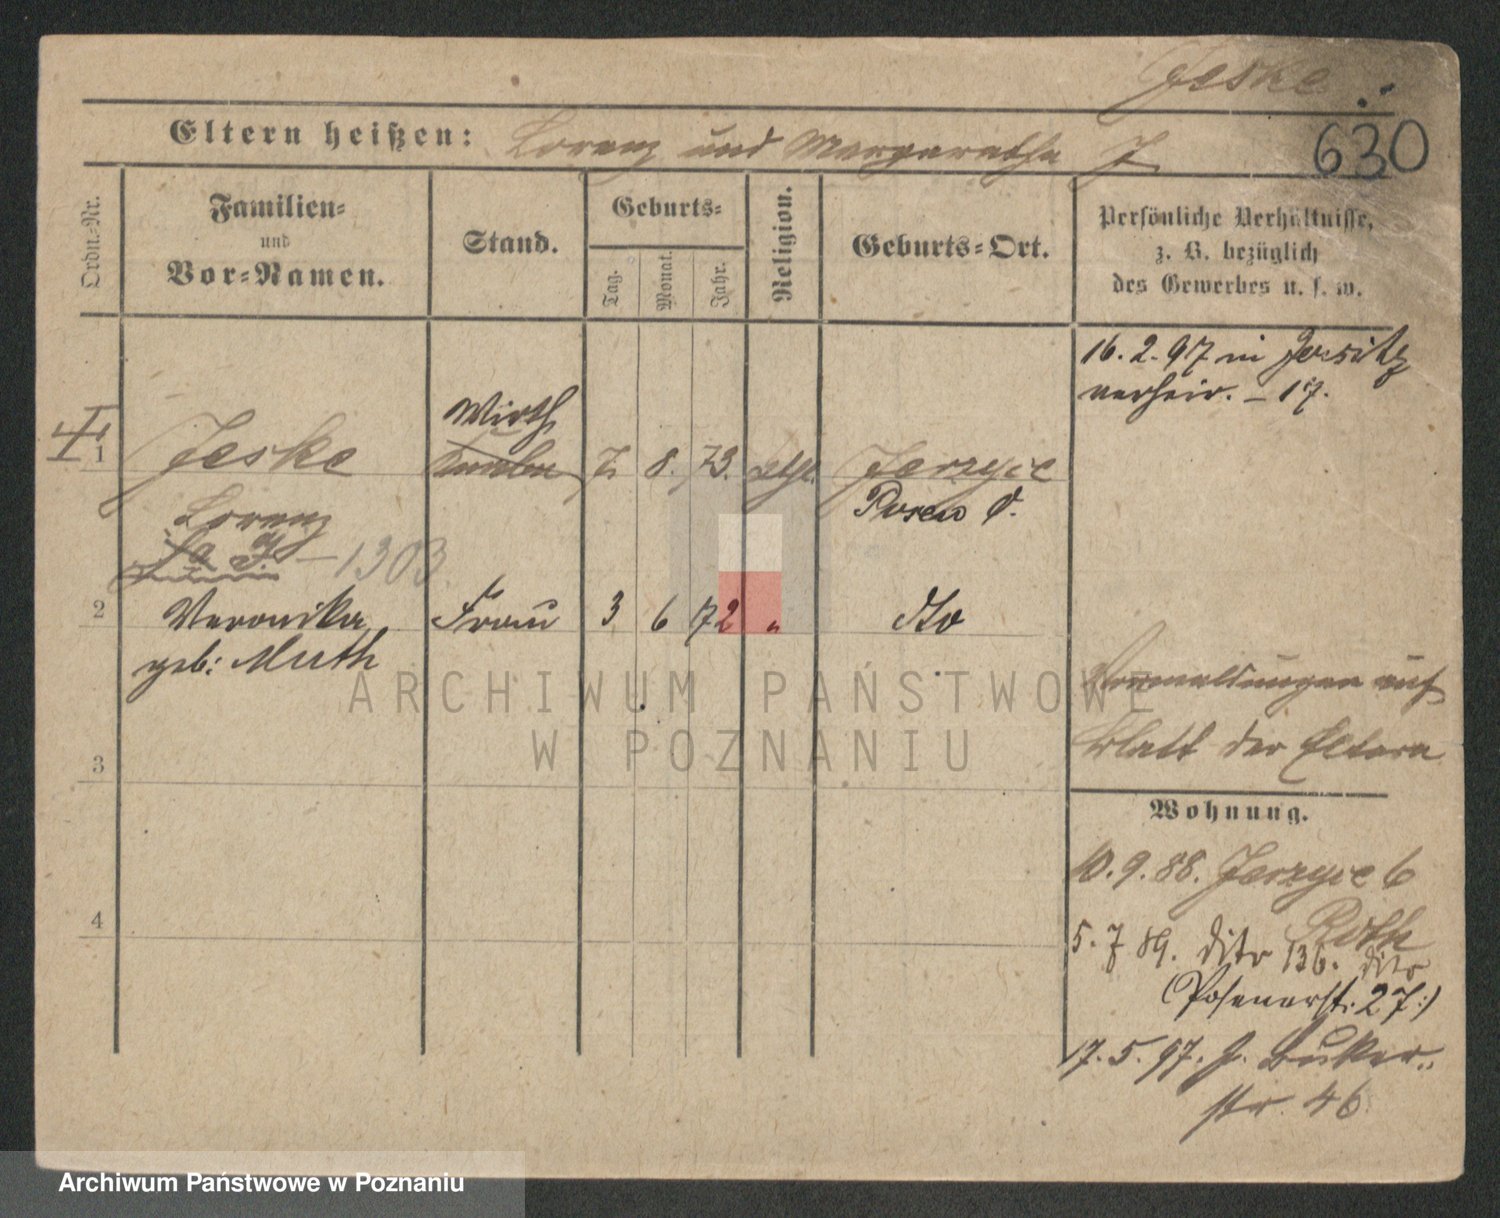 Jeske
630
Eltern heißen: Lorenz und Margaretha J
Ordn.-Nr.
Familien-
und
Vor-Namen.
Stand.
Geburts-
Tag.
Monat.
Jahr.
Religion.
Geburts-Ort.
Persönliche Verhältnisse,
z. B. bezüglich
des Gewerbes u. s. w.
16. 2. 97 in Jersitz
verheir. – 17.
1 Jeske Wirth 7. 8. 73. kthl. Jerzyce
Lorenz Posen O.
1303
2 Veronika Frau 3 6 72 " dto
geb: Muth
3
4
auf
Blatt der Eltern
Wohnung.
10. 9. 88. Jerzyce 6
Roth
5. 7 89. dito 136. dito
(Posenerst. 27:)
17. 5. 97. J. Buker-
str. 46
ARCHIWUM PAŃSTWOWE
W POZNANIU
Archiwum Państwowe w Poznaniu